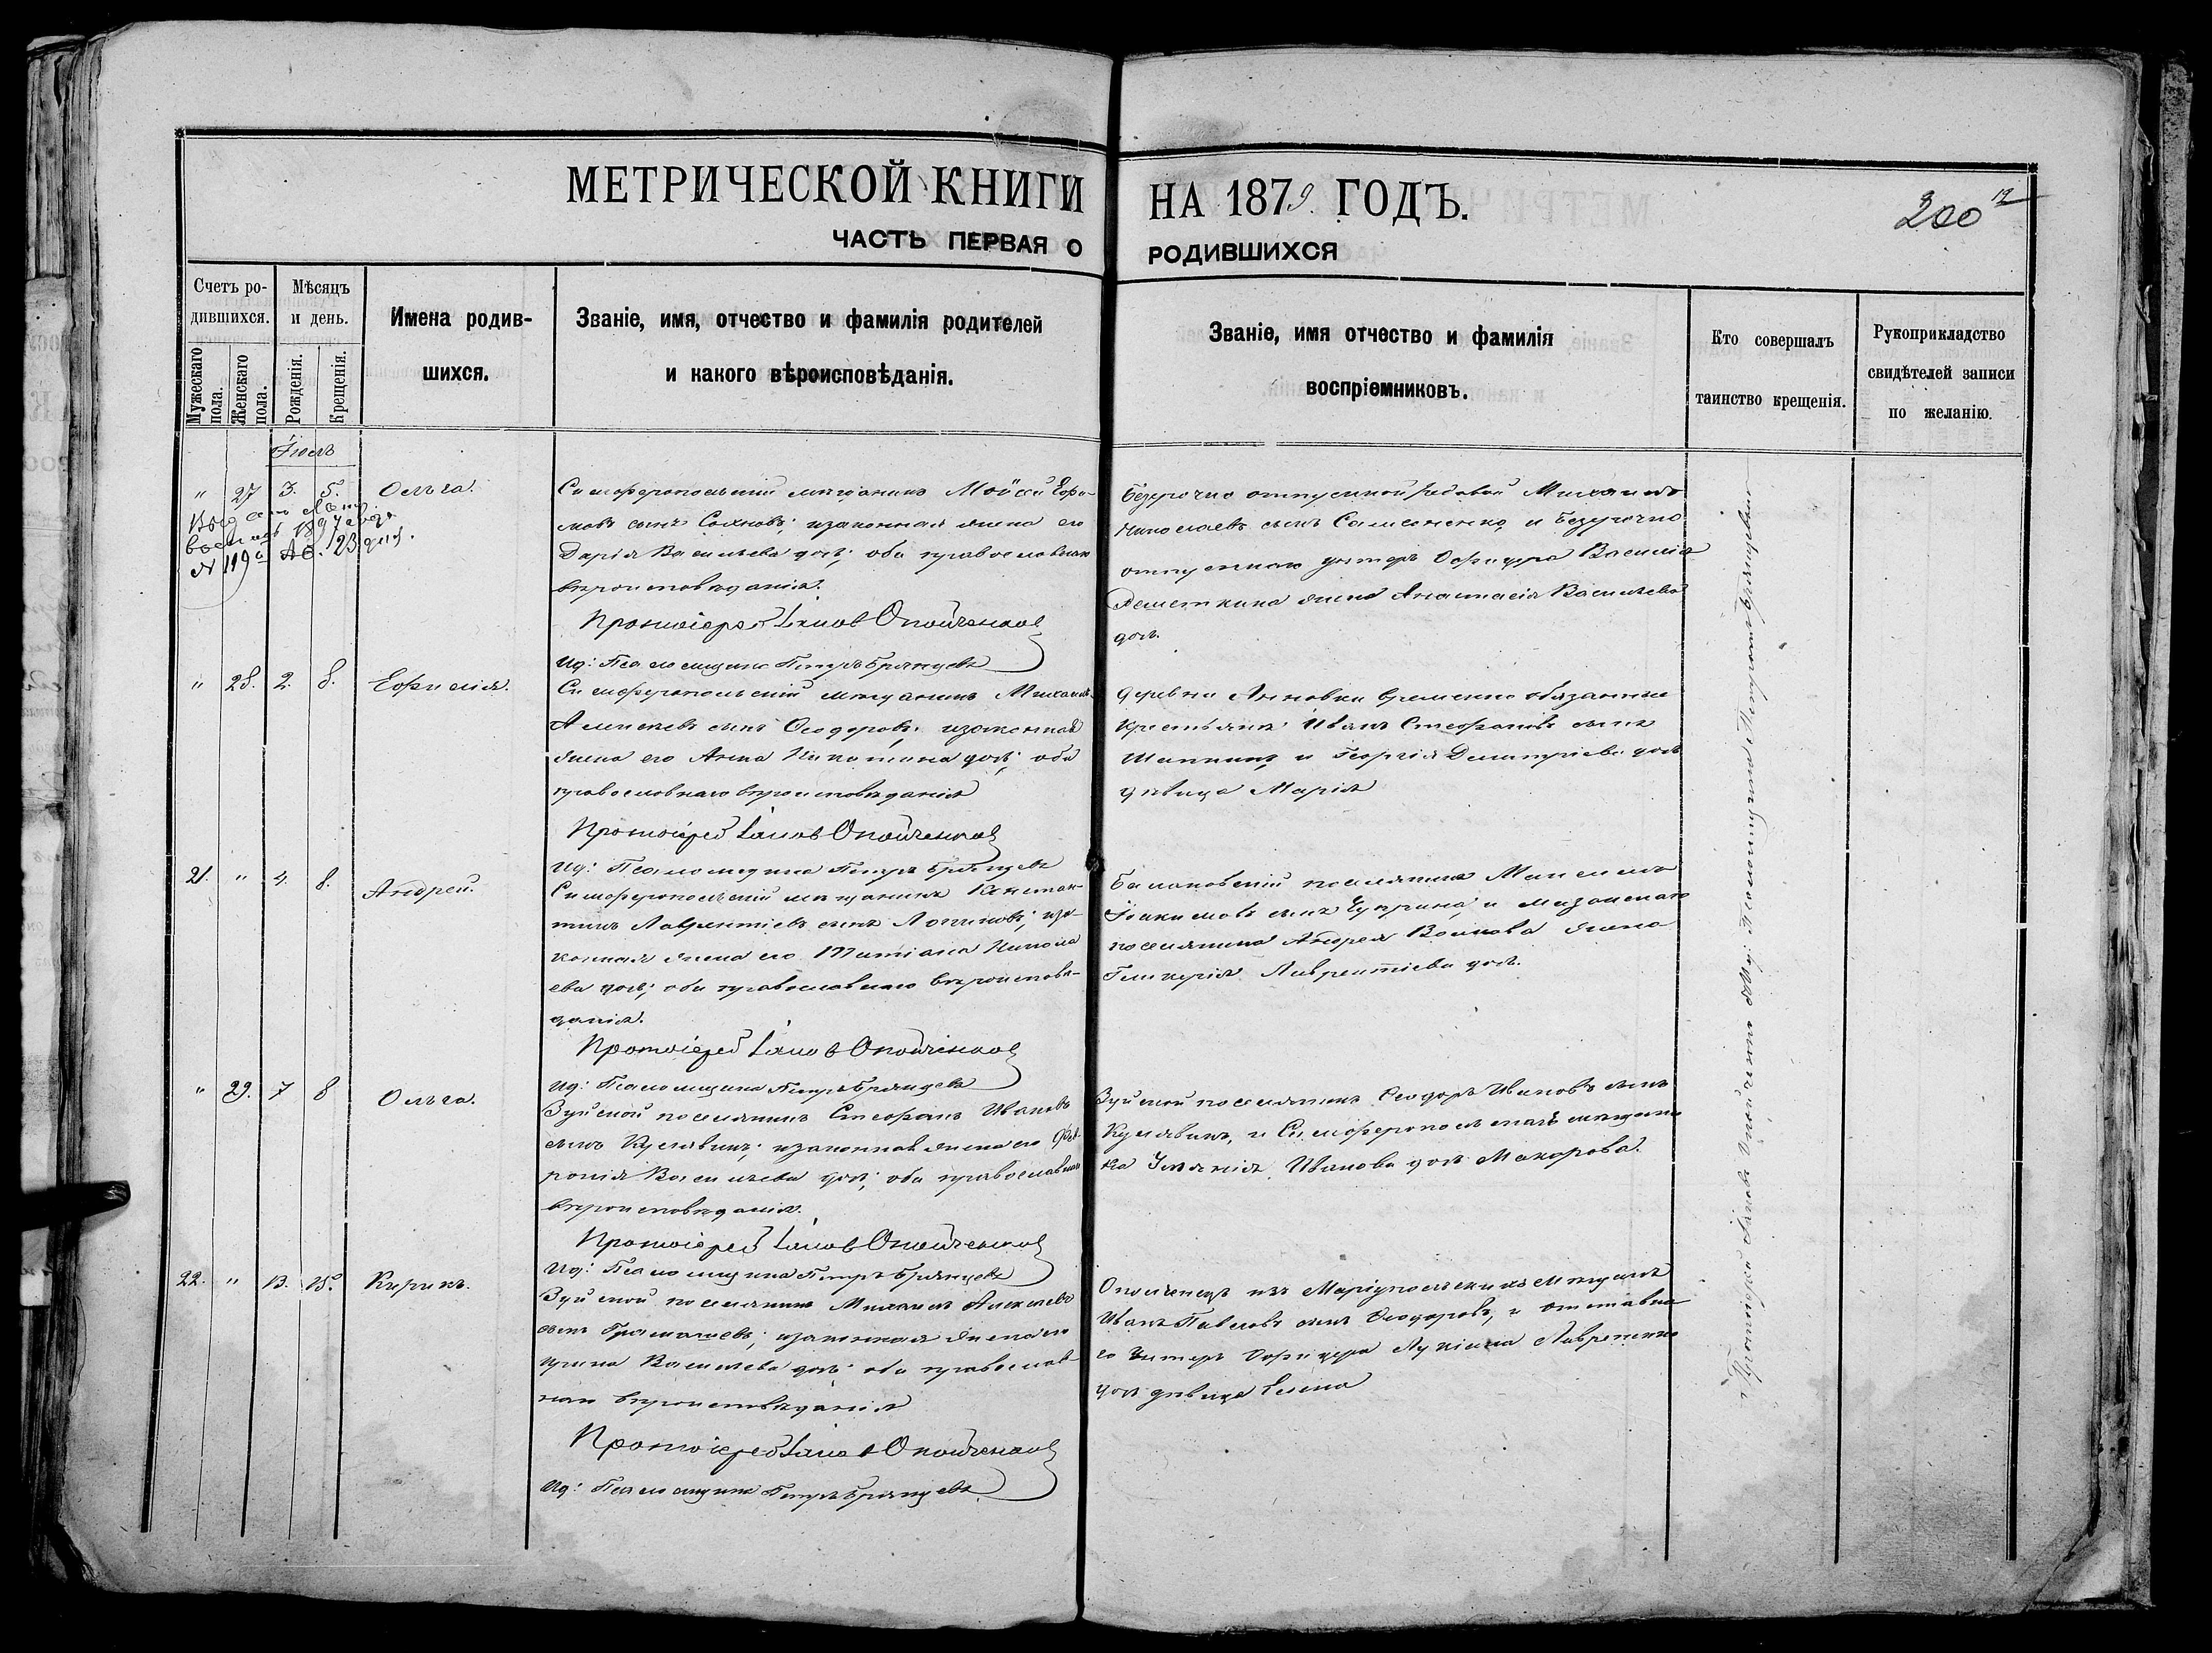 МЕТРИЧЕСКОЙ КНИГИ
НА 1879 ГОДЪ.
200 12
ЧАСТЬ ПЕРВАЯ О
РОДИВШИХСЯ
Счетъ ро-
дившихся.
Мужескаго
пола.
Женскаго
пола.
Мѣсяцъ
и день.
Рожденія.
Крещенія.
Имена родив-
шихся.
Званіе, имя, отчество и фамилія родителей
и какого вѣроисповѣданія.
Званіе, имя отчество и фамилія
воспріемниковъ.
Кто совершалъ
таинство крещенія.
Рукоприкладство
свидѣтелей записи
по желанію.
Іюль
" 27 3. 5. Ольга.
1897 года
№ 119
23 дня.
Симферопольскій мѣщанинъ Моѵсей Ефи-
мовъ сынъ Сохновъ; и законная жена его
Дарія Васильева дочь; оба православнаго
вѣроисповѣданія.
Протоіерей Іаковъ Опойченковъ
Ид: Псаломщика Петръ Брянцевъ
Безсрочно отпускной рядовой Михаилъ
Николаевъ сынъ Самсоненко, и безсрочно
отпускнаго унтеръ Офицера Василія
Решеткина жена Анастасія Васильева
дочь.
" 28. 2. 8. Евфимія.
Симферопольскій мѣщанинъ Михаилъ
Алексѣевъ сынъ Ѳеодоровъ; и законная
жена его Анна Никитина дочь; оба
православнаго вѣроисповѣданія
Протоіерей Іаковъ Опойченковъ
Ид: Псаломщика Петръ Брянцевъ
Деревни Анновки временно обязанный
крестьянинъ Иванъ Стефановъ сынъ
Шапкинъ, и Георгія Димитріева дочь
дѣвица Марія
21. " 4. 8. Андрей.
Симферопольскій мѣщанинъ Констан-
тинъ Лаврентіевъ сынъ Логиновъ; и за-
конная жена его Татіана Никола-
ева дочь; оба православнаго вѣроисповѣ-
данія.
Протоіерей Іаковъ Опойченковъ
Ид: Псаломщика Петръ Брянцевъ
поселянинъ Максимъ
Іоакимовъ сынъ Чуприна, и мазанскаго
поселянина Андрея Волкова жена
Гликерія Лаврентіева дочь.
" 29. 7 8 Ольга.
Зуйской поселянинъ Стефанъ Ивановъ
сынъ Кулявинъ; и законная жена его Фев-
ронія Васильева дочь; оба православнаго
вѣроисповѣданія.
Протоіерей Іаковъ Опойченковъ
Ид: Псаломщика Петръ Брянцевъ
Зуйской поселянинъ Ѳеодоръ Ивановъ сынъ
Кулявинъ, и Симферопольская мѣщан-
ка Уліанія Иванова дочь Макарова.
22. " 13. 15. Кирикъ.
Зуйской поселянинъ Михаилъ Алексѣевъ
сынъ; и законная жена его
Ирина Васильева дочь; оба православ-
наго вѣроисповѣданія
Протоіерей Іаковъ Опойченковъ
Ид: Псаломщика Петръ Брянцевъ
Ополченецъ изъ Маріупольскихъ мѣщанъ
Иванъ Павловъ сынъ Ѳеодоровъ, и отставна-
го Унтеръ Офицера Лукіана Лаврененко
дочь дѣвица Елена
Протоіерей Іаковъ Опойченковъ Ид: Псаломщика Петромъ Брянцевымъ